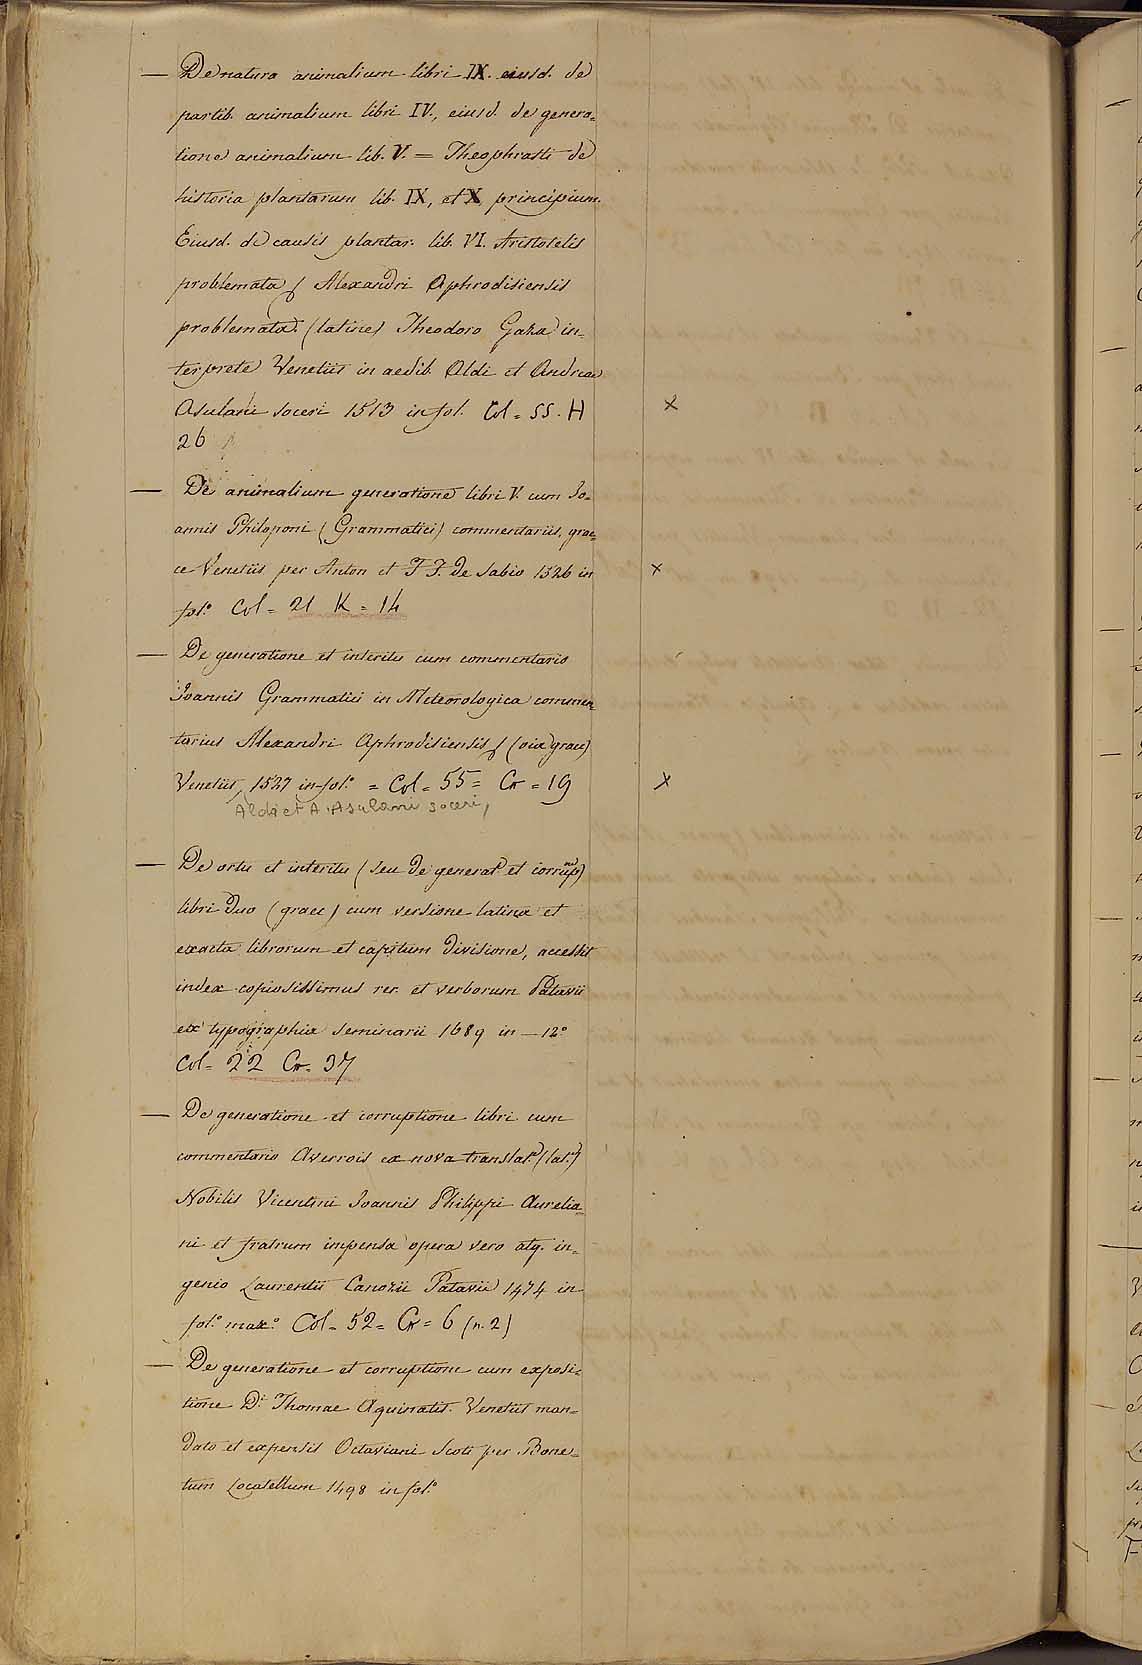 — De natura animalium libri IX. eiusd. de
partib. animalium libri IV., eiusd. de genera=
tione animalium lib. V. = Theophrasti de
historia plantarum lib. IX, et X principium.
Eiusd. de causis plantar. lib. VI. Aristotelis
problemata, Alexandri Aphrodisiensis
problemata. (latine) Theodoro Gaza in-
terprete Venetiis in aedib. Aldi et Andreae
Asulani soceri 1513 in fol. Col = 55. H x
26
— De animalium generatione libri V. cum Jo=
annis Philoponi (Grammatici) commentariis, grae=
ce Venetiis per Anton et FF. de Sabio 1526 in x
fol.° Col = 21 K = 14
— De generatione et interitu cum commentario
Joannis Grammatici in Meteorologica commen=
tarius Alexandri Aphrodisiensis, (oia graec)
Venetiis, 1527 in fol.° = Col = 55 = Cr = 19 x
Aldi et A. Asulani soceri,
— De ortu et interitu (seu de generat. et corrup.ne)
libri duo (graec) cum versione latina et
exacta librorum et capitum divisione, accessit
index copiosissimus rer. et verborum Patavii
ex typographia seminarii 1689 in — 12.°
Col = 22 Cr = 37
— De generatione et corruptione libri cum
commentario Averrois ex nova translat.e (lat.e)
Nobilis Vicentini Joannis Philippi Aurelia=
ni et fratrum impensa opera vero atq. in=
genio Laurentii Canozii Patavii 1474 in
fol.° max.° Col = 52 = Cr = 6 (n. 2)
— De generatione et corruptione cum exposi=
tione D.i Thomae Aquinatis. Venetiis man=
dato et expensis Octaviani Scoti per Bone=
tum Locatellum 1498 in fol.°